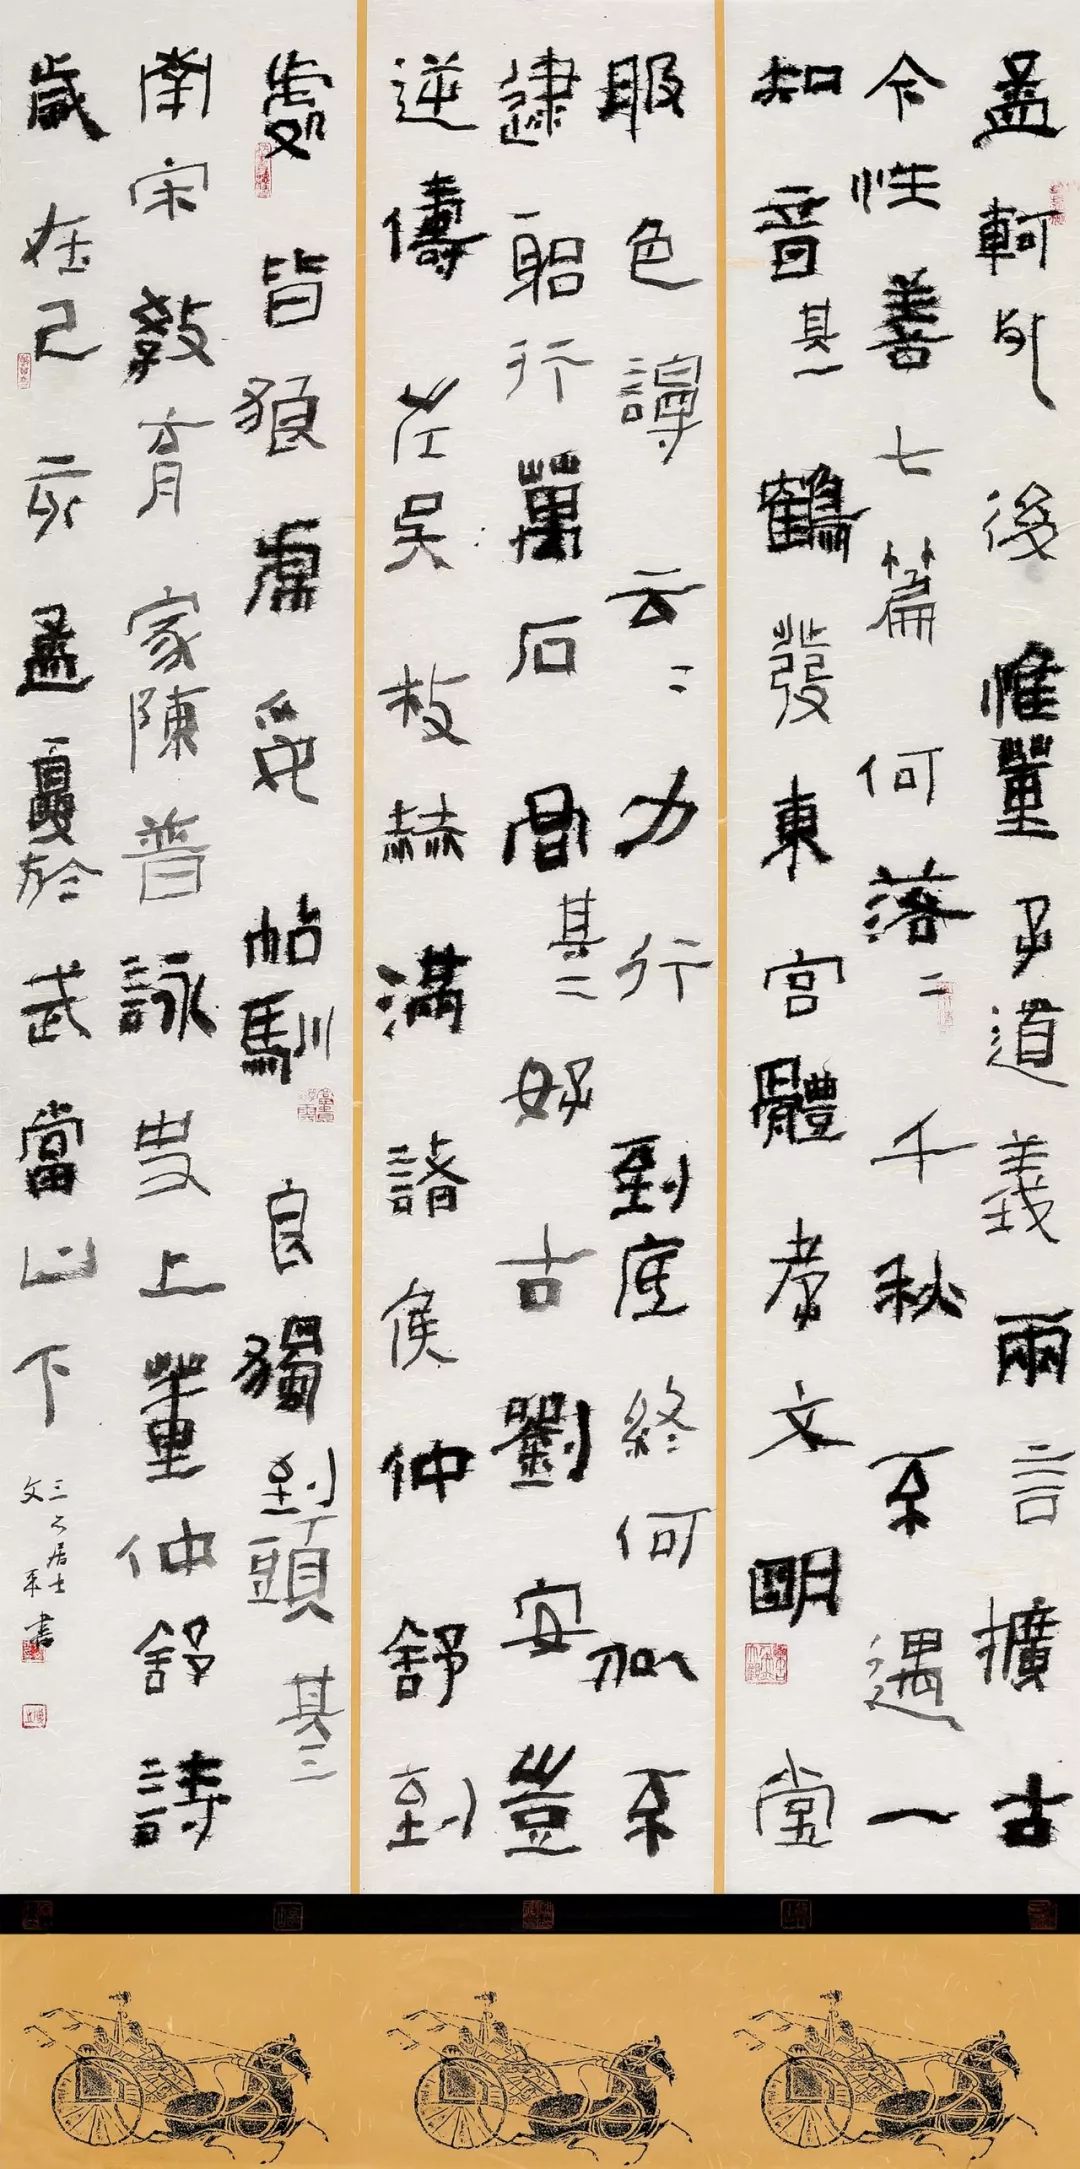 孟軻死後惟董子道義兩言擴古
今性善七篇何落〻千秋不遇一
知音其一鶴發東宮體孝文明堂
服色謾云〻力行到底終何如不
逮躬行萬石君其二好古劉安豈
逆儔左吳枚赫滿諸侯仲舒到
處皆狼虎妥帖馴良獨到頭其三
南宋教育家陳普詠史上董仲舒詩
歲在己亥孟夏於武當山下
居士
文平書